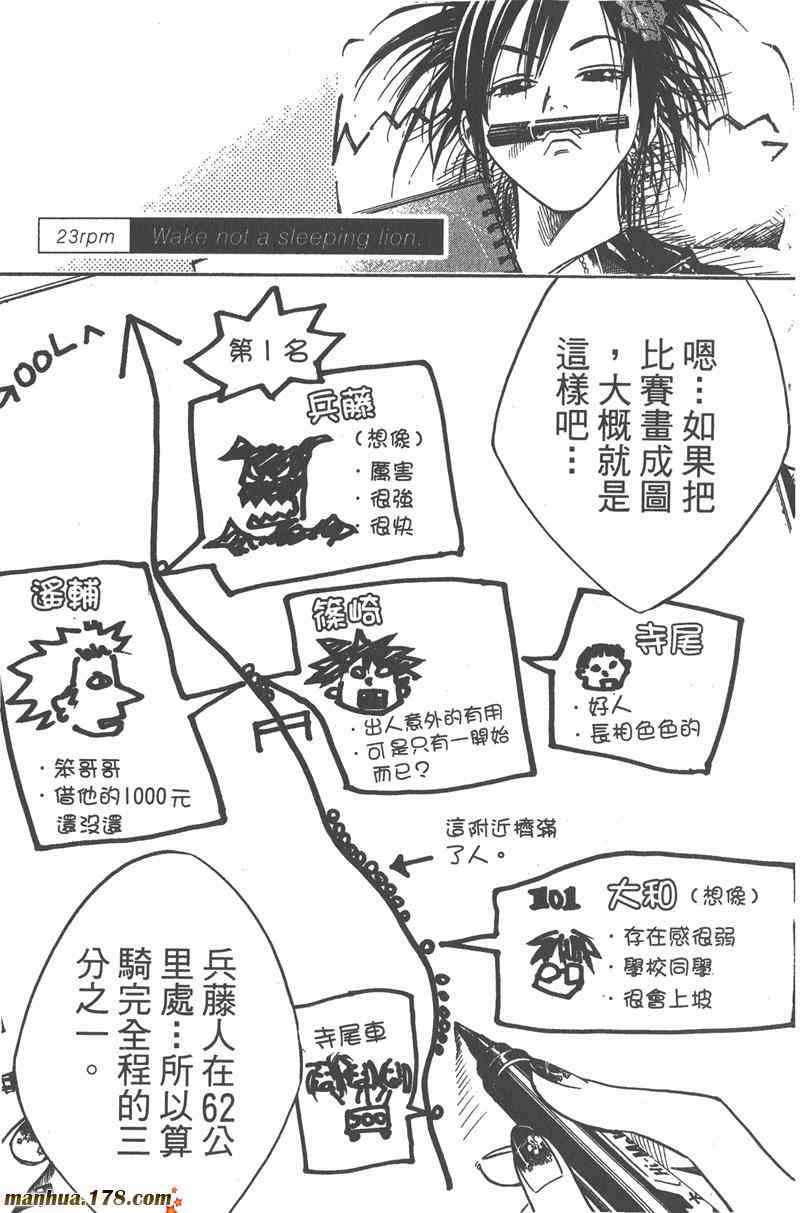 23rpm Wake not a sleeping lion.
嗯…如果把
比賽畫成圖
，大概就是
這樣吧…
GOOL
第1名
兵藤
（想像）
·厲害
·很強
·很快
寺尾
·好人
·長相色色的
篠崎
·出人意外的有用
·可是只有一開始
而已？
遙輔
·笨哥哥
·借他的1000元
還沒還
這附近擠滿
了人。
101 大和（想像）
·存在感很弱
·學校同學
·很會上坡
寺尾車
兵藤人在62公
里處…所以算
騎完全程的三
分之一。
manhua.178.com